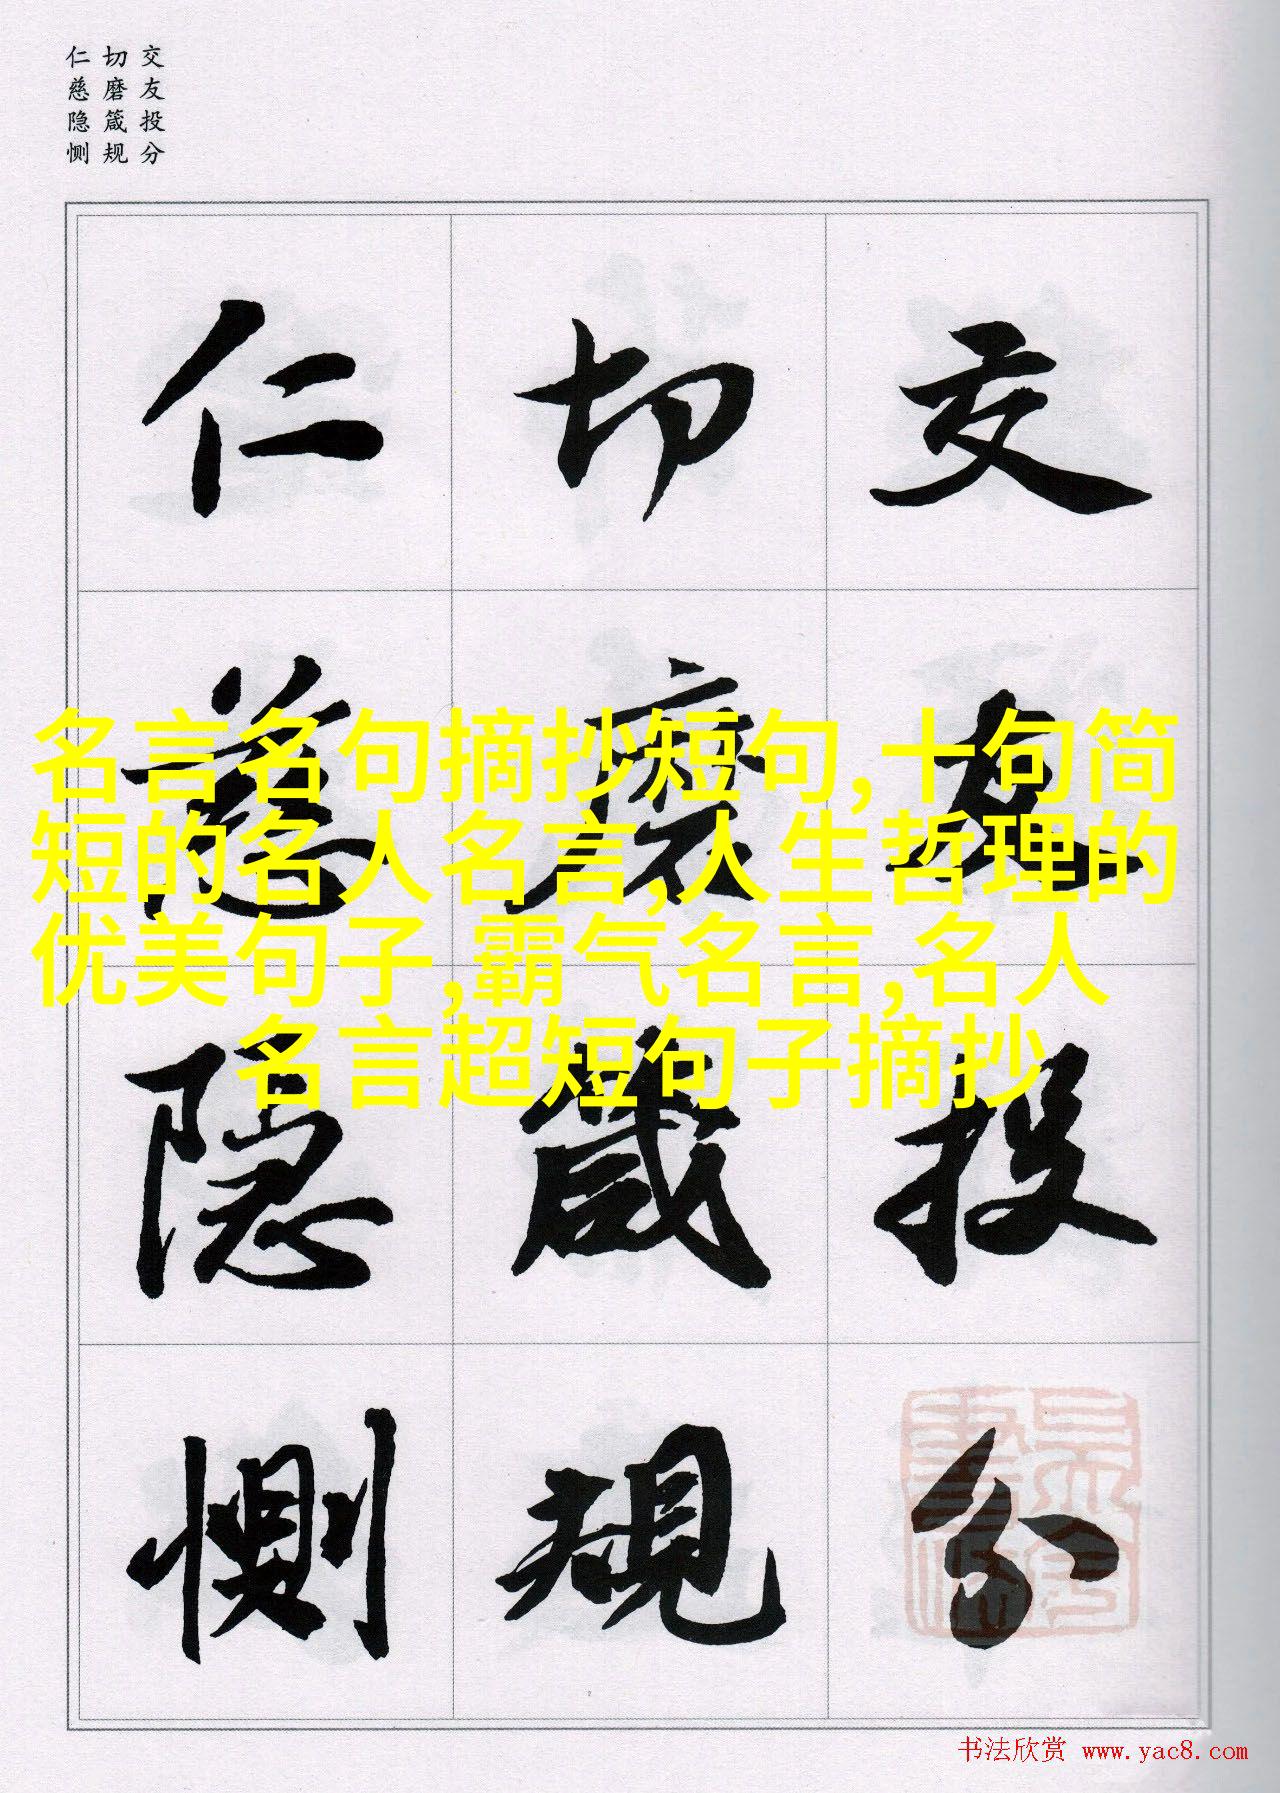 交友投分
切磨箴规
仁慈隐恻
交友投分
切磨箴规
仁慈隐恻
名言名句摘抄短句,十句简
短的名人名言,人生哲理的
优美句子,霸气名言,名人
名言超短句子摘抄
书法欣赏 www.yac8.com